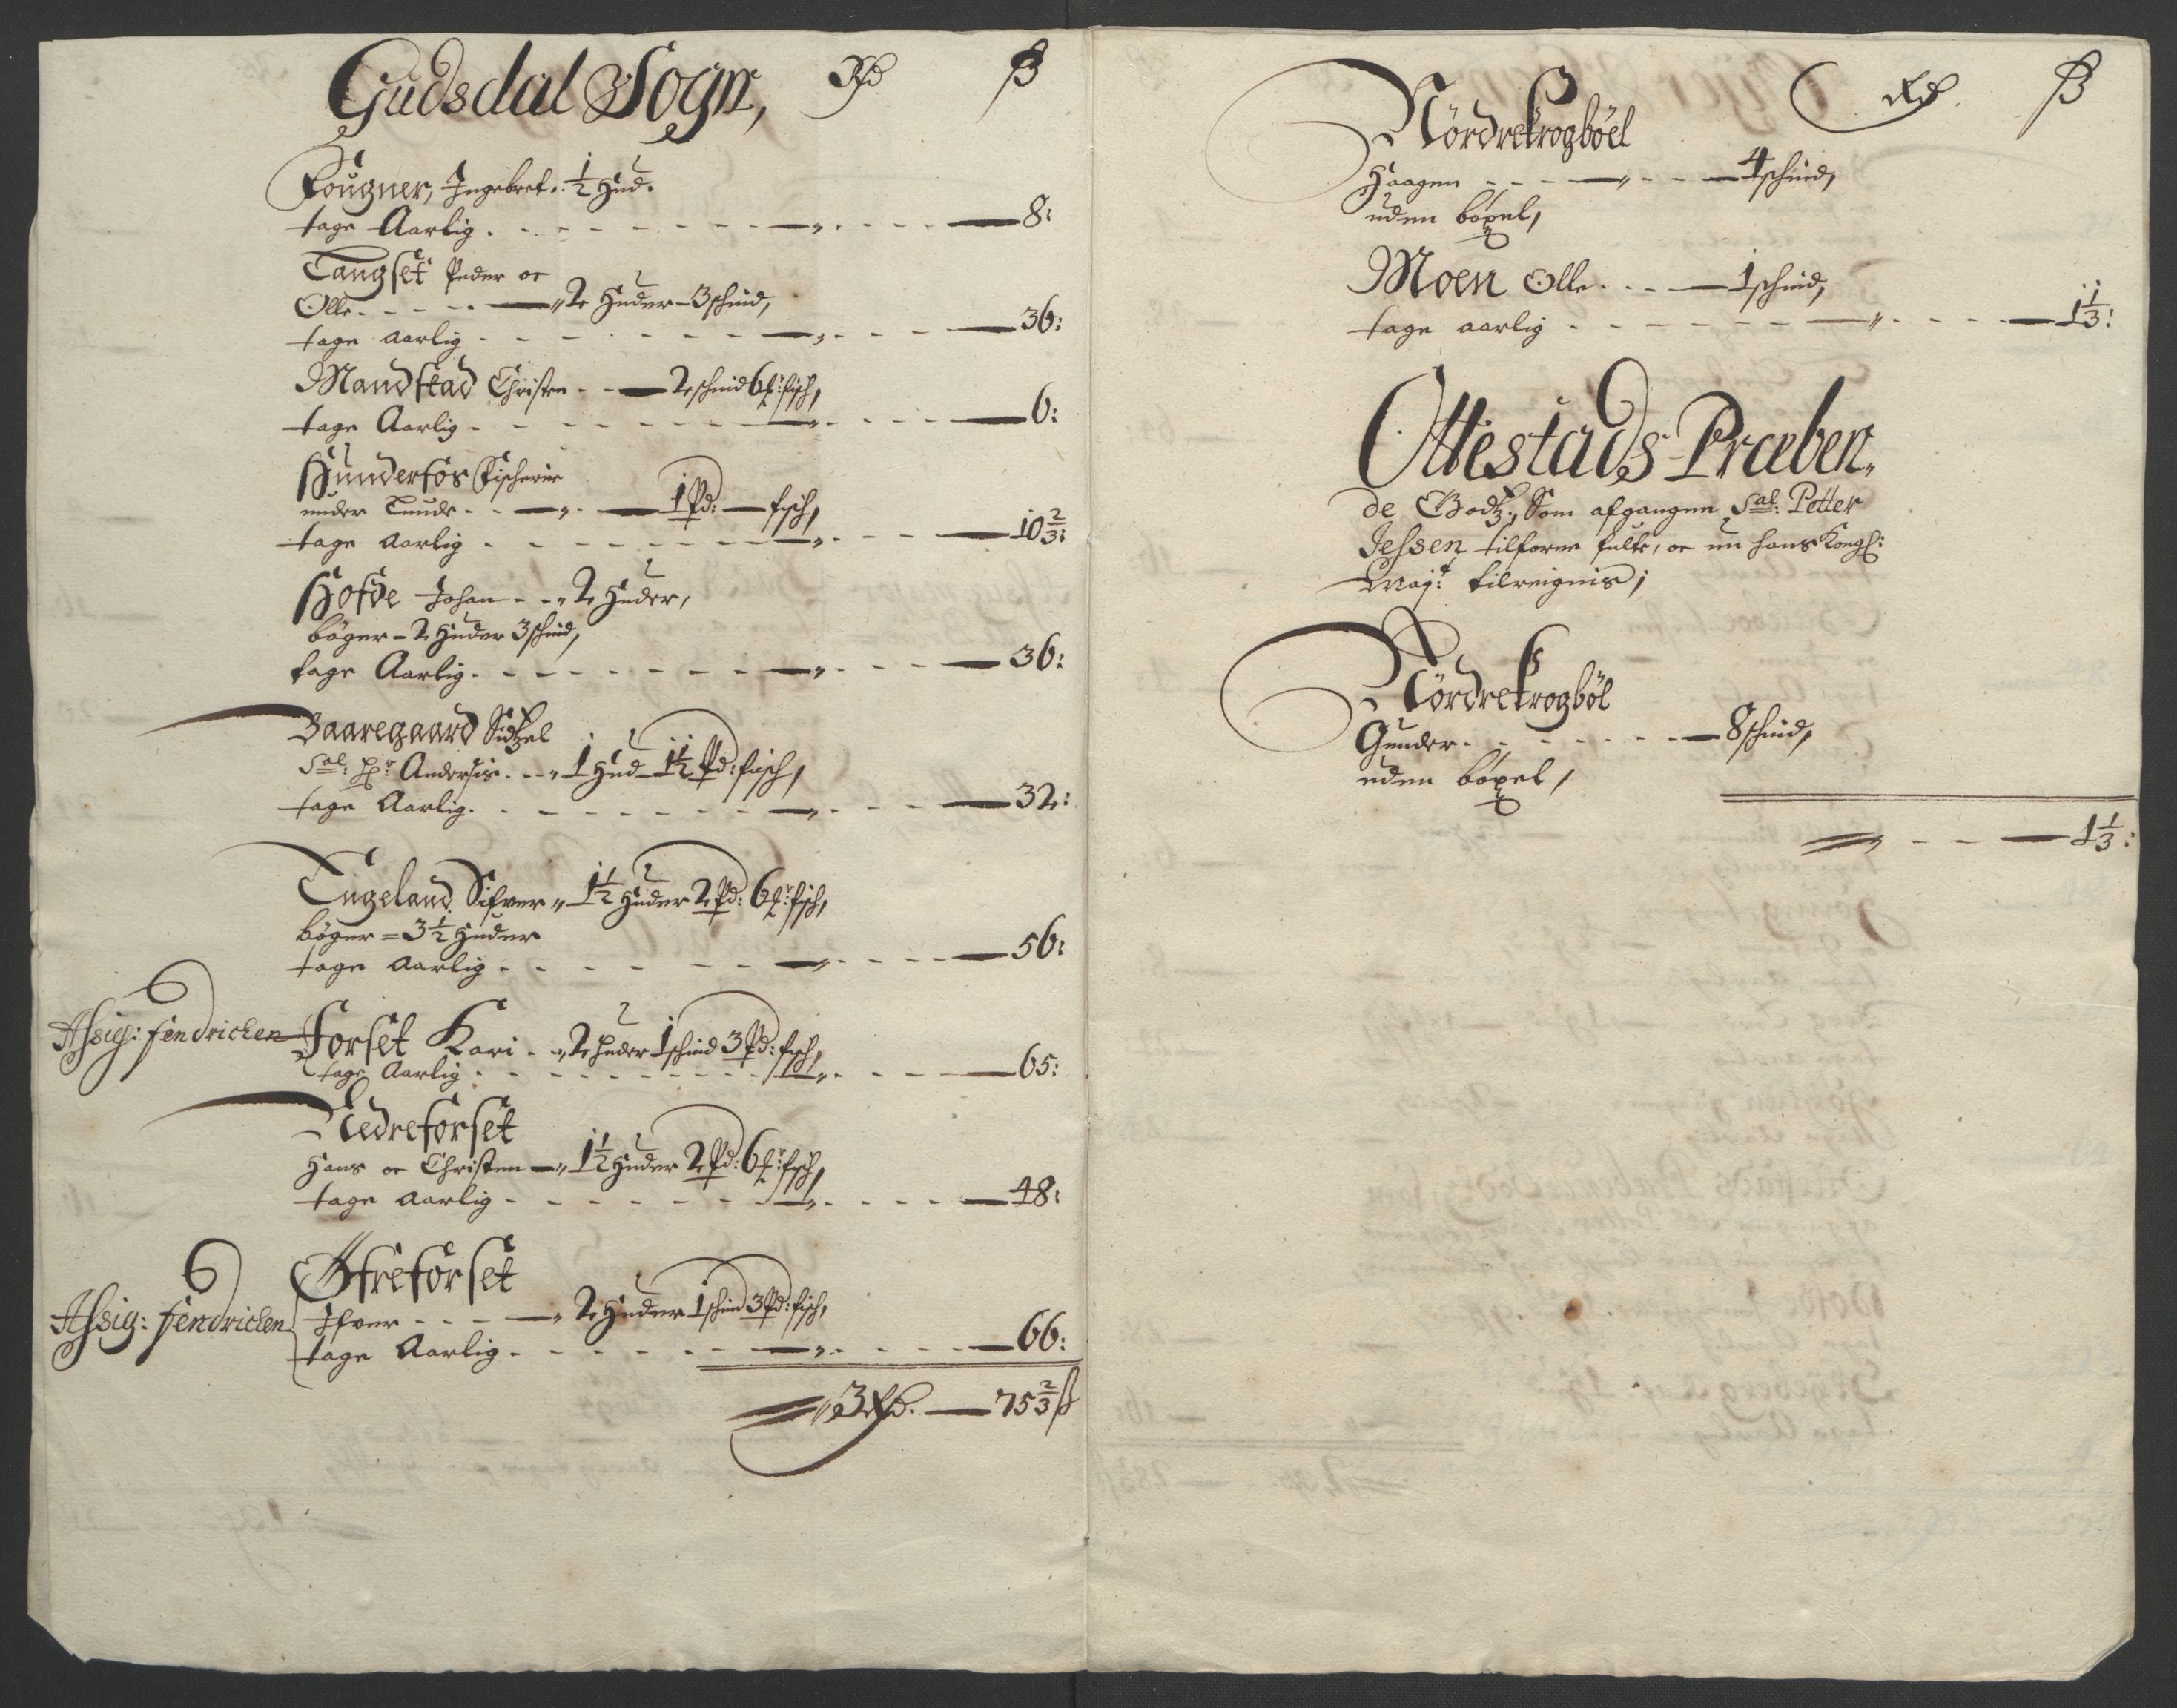 Gudsdal Sogn, Rd ß
Fougner, Ingebret. ½ Hud.
tage Aarlig - - - 8:
Tangset Peder oc
Olle - - - 2 Huder - 3 schind,
tage aarlig - - - 36:
Mandstad Christen - - 2 schind 6 fisch,
tage Aarlig - - - 6:
Hunderfos Fischerie
under - - 1 Pd: - fisch,
tage aarlig - - - 10 2/3:
Hofde Johan - - 2 Huder,
böger - 2 Huder 3 schind,
tage Aarlig - - - 36:
Baaregaard Sidzel
Sal: Andersis - - 1 Hud - 1½ Pd: fisch,
tage Aarlig - - - 32:
Tugeland Sifver 1½ Huder 2 Pd: 6 fisch,
böger = 3½ Huder
tage aarlig - - - 56:
Assig: fendrichen Forset Kari - 2 Huder 1 schind 3 Pd: fisch,
tage Aarlig - - - 65:
Nedreforset
Hans oc Christen - 1½ Huder 2 Pd: 6 fisch,
tage aarlig - - - 48:
Öfreforset
Assig: fendrichen Ifver - - - 2 Huder 1 schin 3 Pd: fisch,
tage Aarlig - - - 66:
3 Rd. - 75 2/3 ß
Rd. ß
Nördrekrogböel
Haagen - - - 4 schind,
uden böxel,
Moen Olle - - - 1 schind,
tage aarlig - - - 1 1/3:
Ottestads Præben,
de Godz, Som afgangne Sal: Petter
Jessen tilforne fulte, oc nu hans Kongl:
Maj:t tilreignis;
Nördrekrogböl
Gunder - - - 8 schind,
uden böxel,
1 1/3: